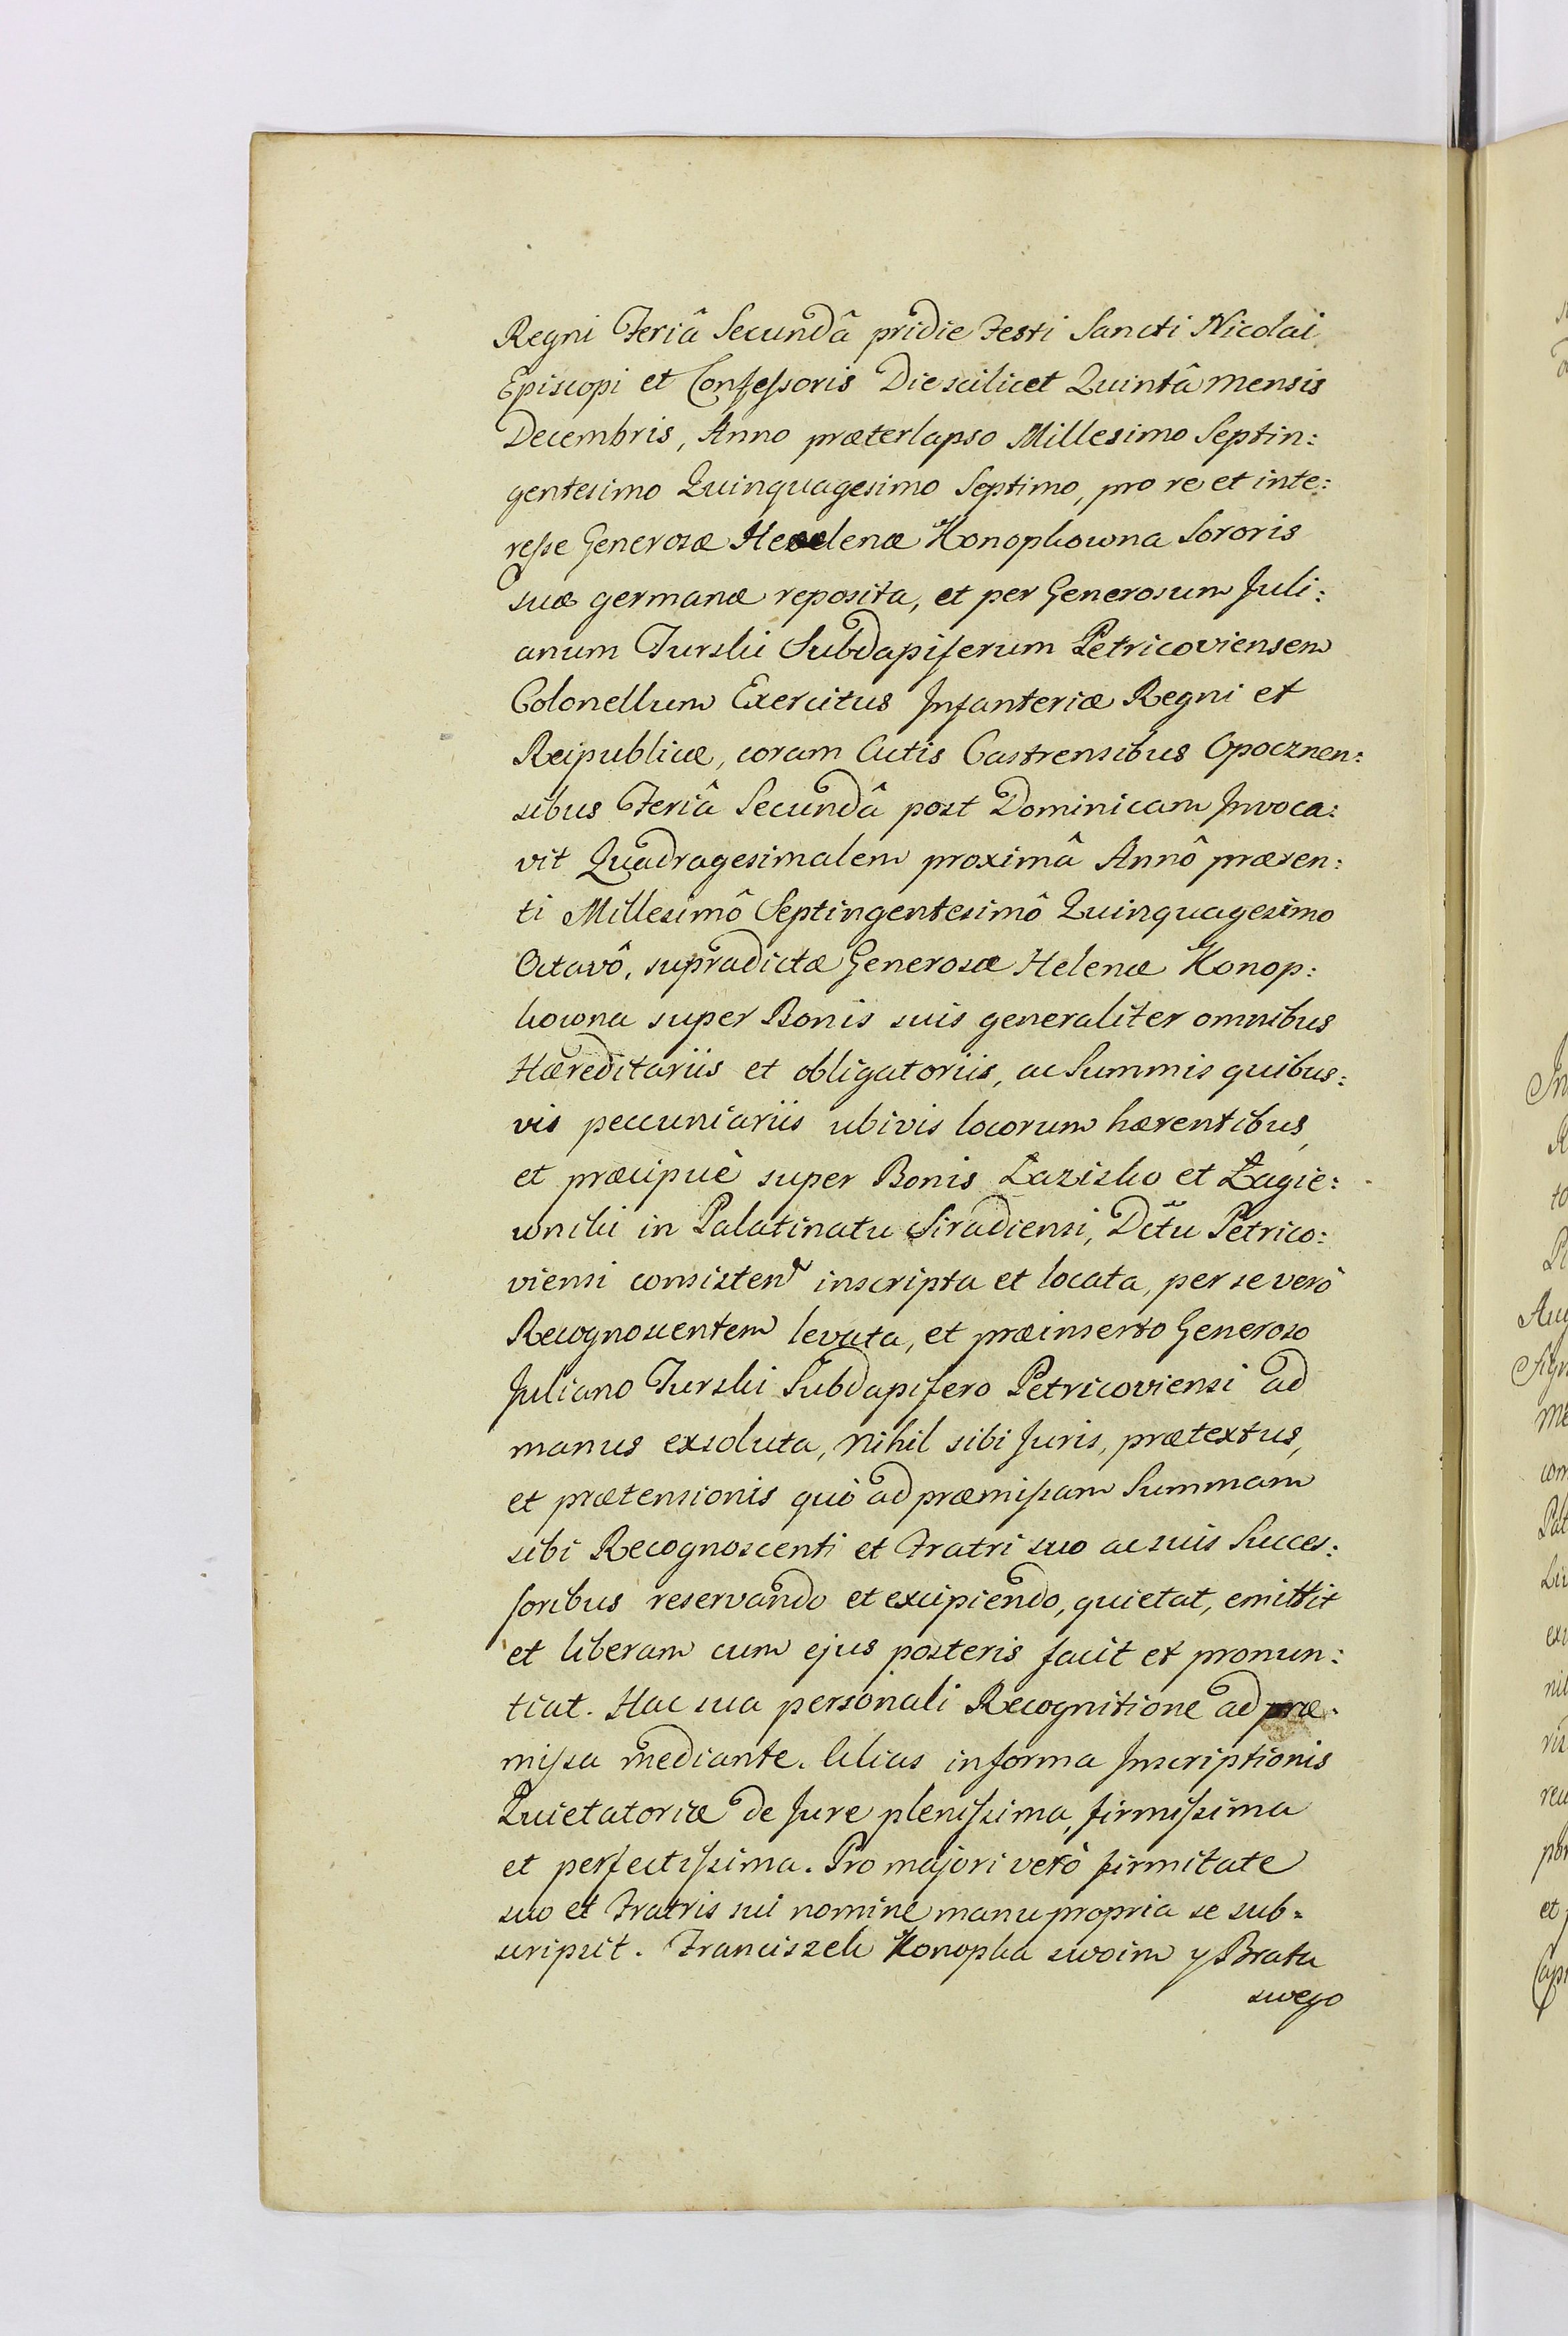 Regni Feriâ Secundâ pridie Festi Sancti Nicolai
Episcopi et Confessoris Die scilicet Quintâ mensis
Decembris, Anno præterlapso Millesimo Septin:
gentesimo Quinquagesimo Septimo, pro re et inte:
resse Generosæ Helenæ Konopkowna Sororis
suæ germanæ reposita, et per Generosum Juli:
anum Turski Subdapiferum Petricoviensem
Colonellum Exercitus Infanteriæ Regni et
Reipublicæ, coram Actis Castrensibus Opocznen:
sibus Feriâ Secundâ post Dominicam Invoca:
vit Quadragesimalem proximâ Annô præsen:
ti Millesimô Septingentesimô Quinquagesimo
Octavô, supradictæ Generosæ Helenæ Konop:
kowna super Bonis suis generaliter omnibus
Hæreditariis et obligatoriis, ac Summis quibus:
vis peccuniariis ubivis locorum hærentibus,
et præcipuè super Bonis Łazisko et Łagie:
wniki in Palatinatu Siradiensi, Dctu Petrico:
viensi consisten inscripta et locata, per se verò
Recognoscentem levata, et præinserto Generoso
Juliano Turski Subdapifero Petricoviensi ad
manus exsoluta, nihil sibi Juris, prætextus,
et prætensionis quò ad præmissam Summam
sibi Recognoscenti et Fratri suo ac suis Succes:
soribus reservando et excipiendo, quietat, emittit
et liberam cum ejus posteris facit et pronun:
tiat. Hac sua personali Recognitione ad præ:
missa mediante. Alias in forma Inscriptionis
Quietatoriæ de Jure plenissima, firmissima
et perfectissima. Pro majori verò firmitate
suo et Fratris sui nomine manu propria se sub=
scripsit. Franciszek Konopka swoim y Brata
swego